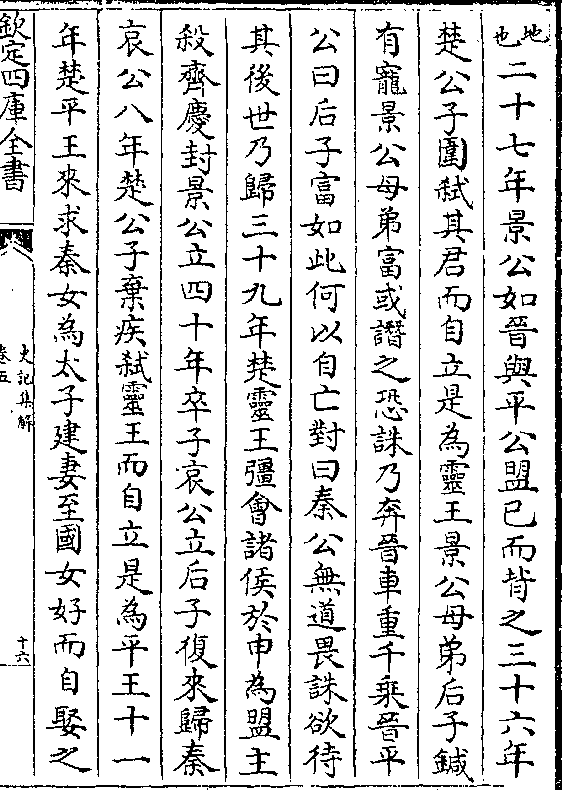 地
也二十七年景公如晉與平公盟已而背之三十六年
楚公子圍弑其君而自立是為靈王景公母弟后子鍼
有寵景公母弟富或譖之恐誅乃奔晉車重千乗晉平
公曰后子富如此何以自亡對曰秦公無道畏誅欲待
其後世乃歸三十九年楚靈王彊會諸侯於申為盟主
殺齊慶封景公立四十年卒子哀公立后子復來歸秦
哀公八年楚公子棄疾弑靈王而自立是為平王十一
年楚平王來求秦女為太子建妻至國女好而自娶之
欽定四庫全書
史記集解
卷五
十六